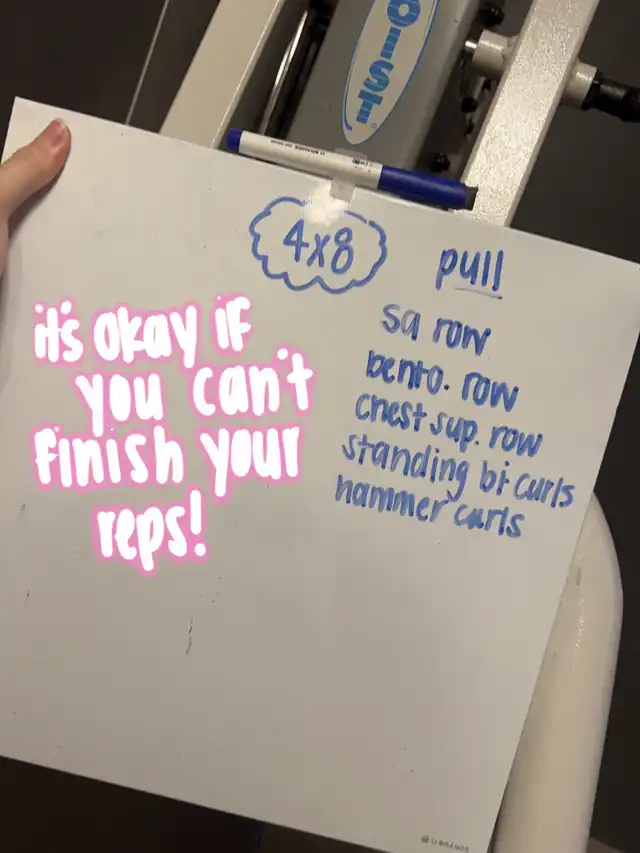 4x8
pull
sa row
bento. row
chest sup. row
standing bi curls
hammer curls
it's okay if
you can't
finish your
reps!
U BRANDS
U BRANDS